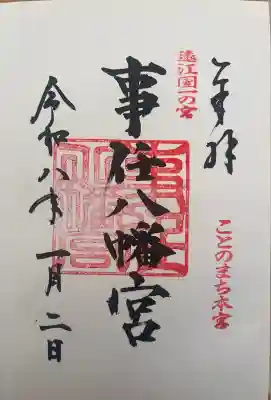 奉拝
遠江国一の宮
ことのまち本宮
事任八幡宮
令和八年一月二日